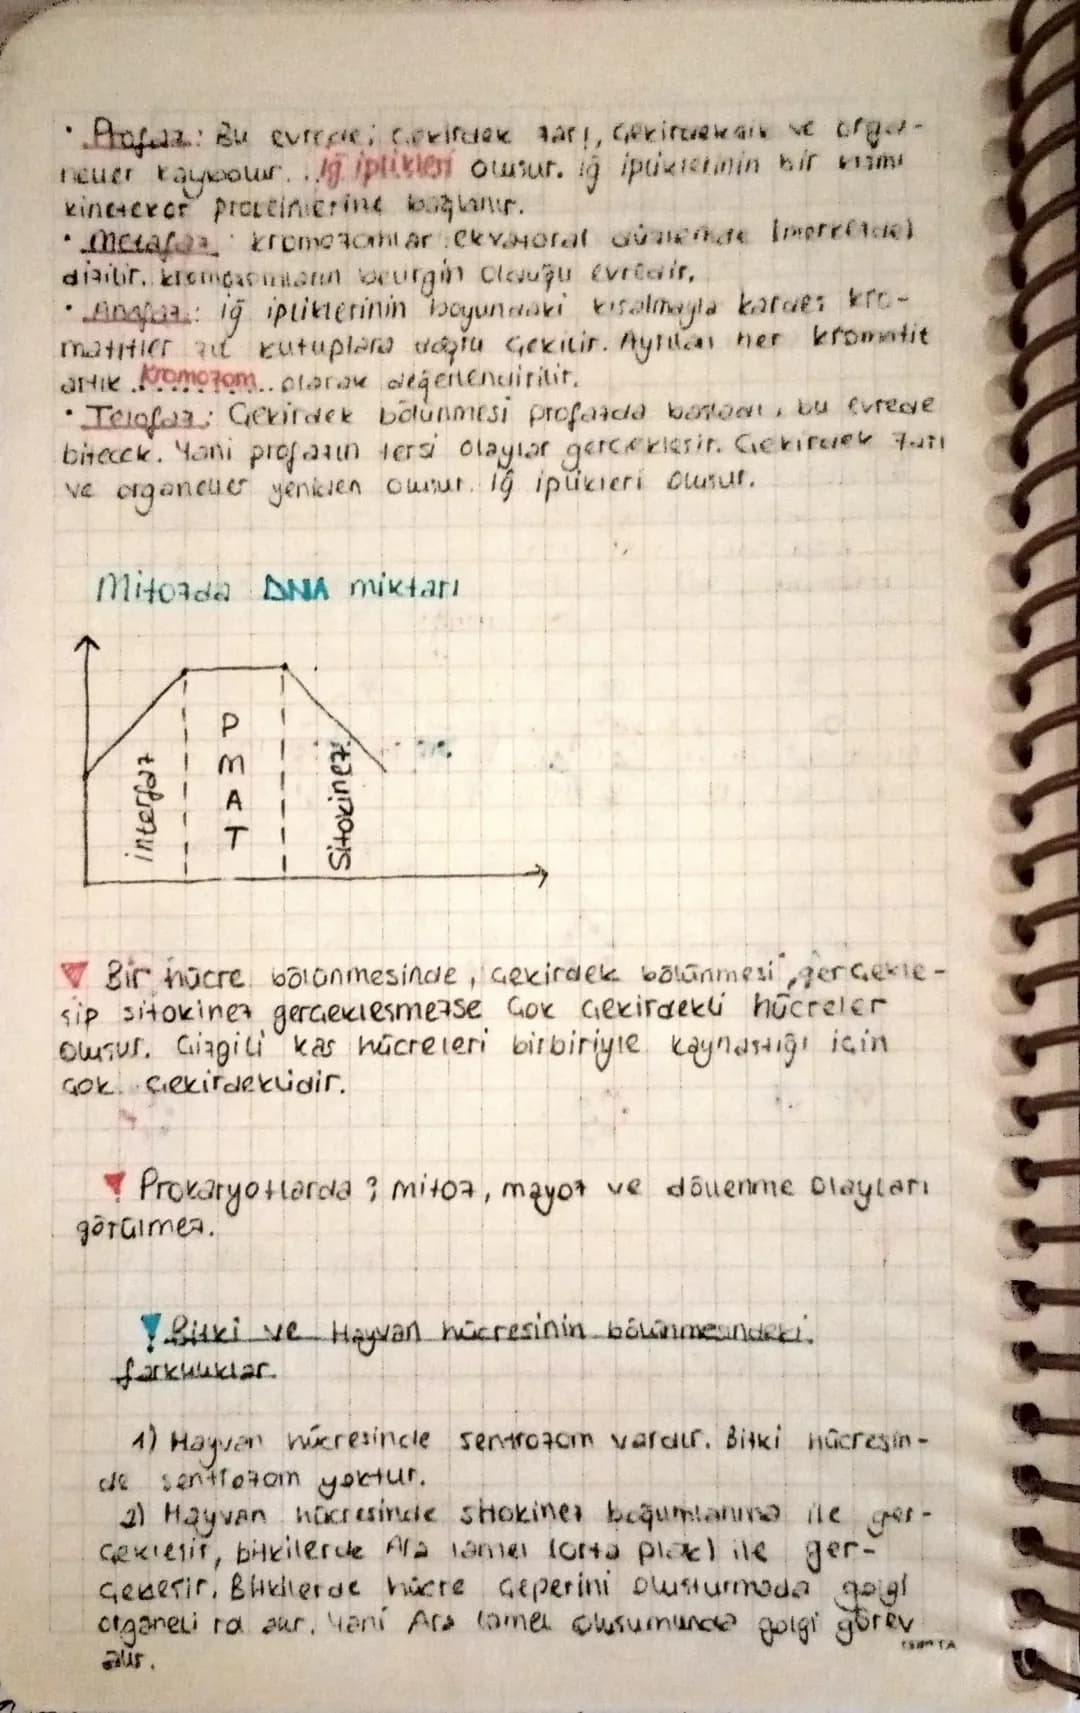 • Profaz: Bu evrede; çekirdek zarı, çekirdekçik ve orga-
neller kaybolur. İğ iplikleri oluşur. iğ ipliklerinin bir kısmı
kinetekor proteinlerine bağlanır.
• Metafaz: kromozomlar ekvatoral düzlemde (merkezde)
dizilir. kromozomların belirgin olduğu evredir.
• Anafaz: iğ ipliklerinin boyundaki kısalmayla kardeş kro-
matitler zıt kutuplara doğru çekilir. Ayrılan her kromatit
artık kromozom olarak değerlendirilir.
• Telofaz: Çekirdek bölünmesi profazda başladı, bu evrede
bitecek. Yani profazın tersi olaylar gerçekleşir. Çekirdek zarı
ve organeller yeniden oluşur. İğ iplikleri oluşur.
Mitozda DNA miktarı
interfaz
P
M
A
T
Sitokinez
Bir hücre bölünmesinde, çekirdek bölünmesi gerçekle-
şip sitokinez gerçekleşmezse Çok çekirdekli hücreler
oluşur. Çizgili kas hücreleri birbiriyle kaynaştığı için
çok çekirdeklidir.
Prokaryotlarda ; mitoz, mayoz ve döllenme olayları
görülmez.
Bitki ve Hayvan hücresinin bölünmesindeki
farklılıklar
1) Hayvan hücresinde sentrozom vardır. Bitki hücresin-
de sentrozom yoktur.
2) Hayvan hücresinde sitokinez boğumlanma ile ger-
çekleşir, bitkilerde Ara lamel (orta plak) ile ger-
çekleşir. Bitkilerde hücre çeperini oluşturmada golgi
organeli rol alır. Yani Ara lamel oluşumunda golgi görev
alır.